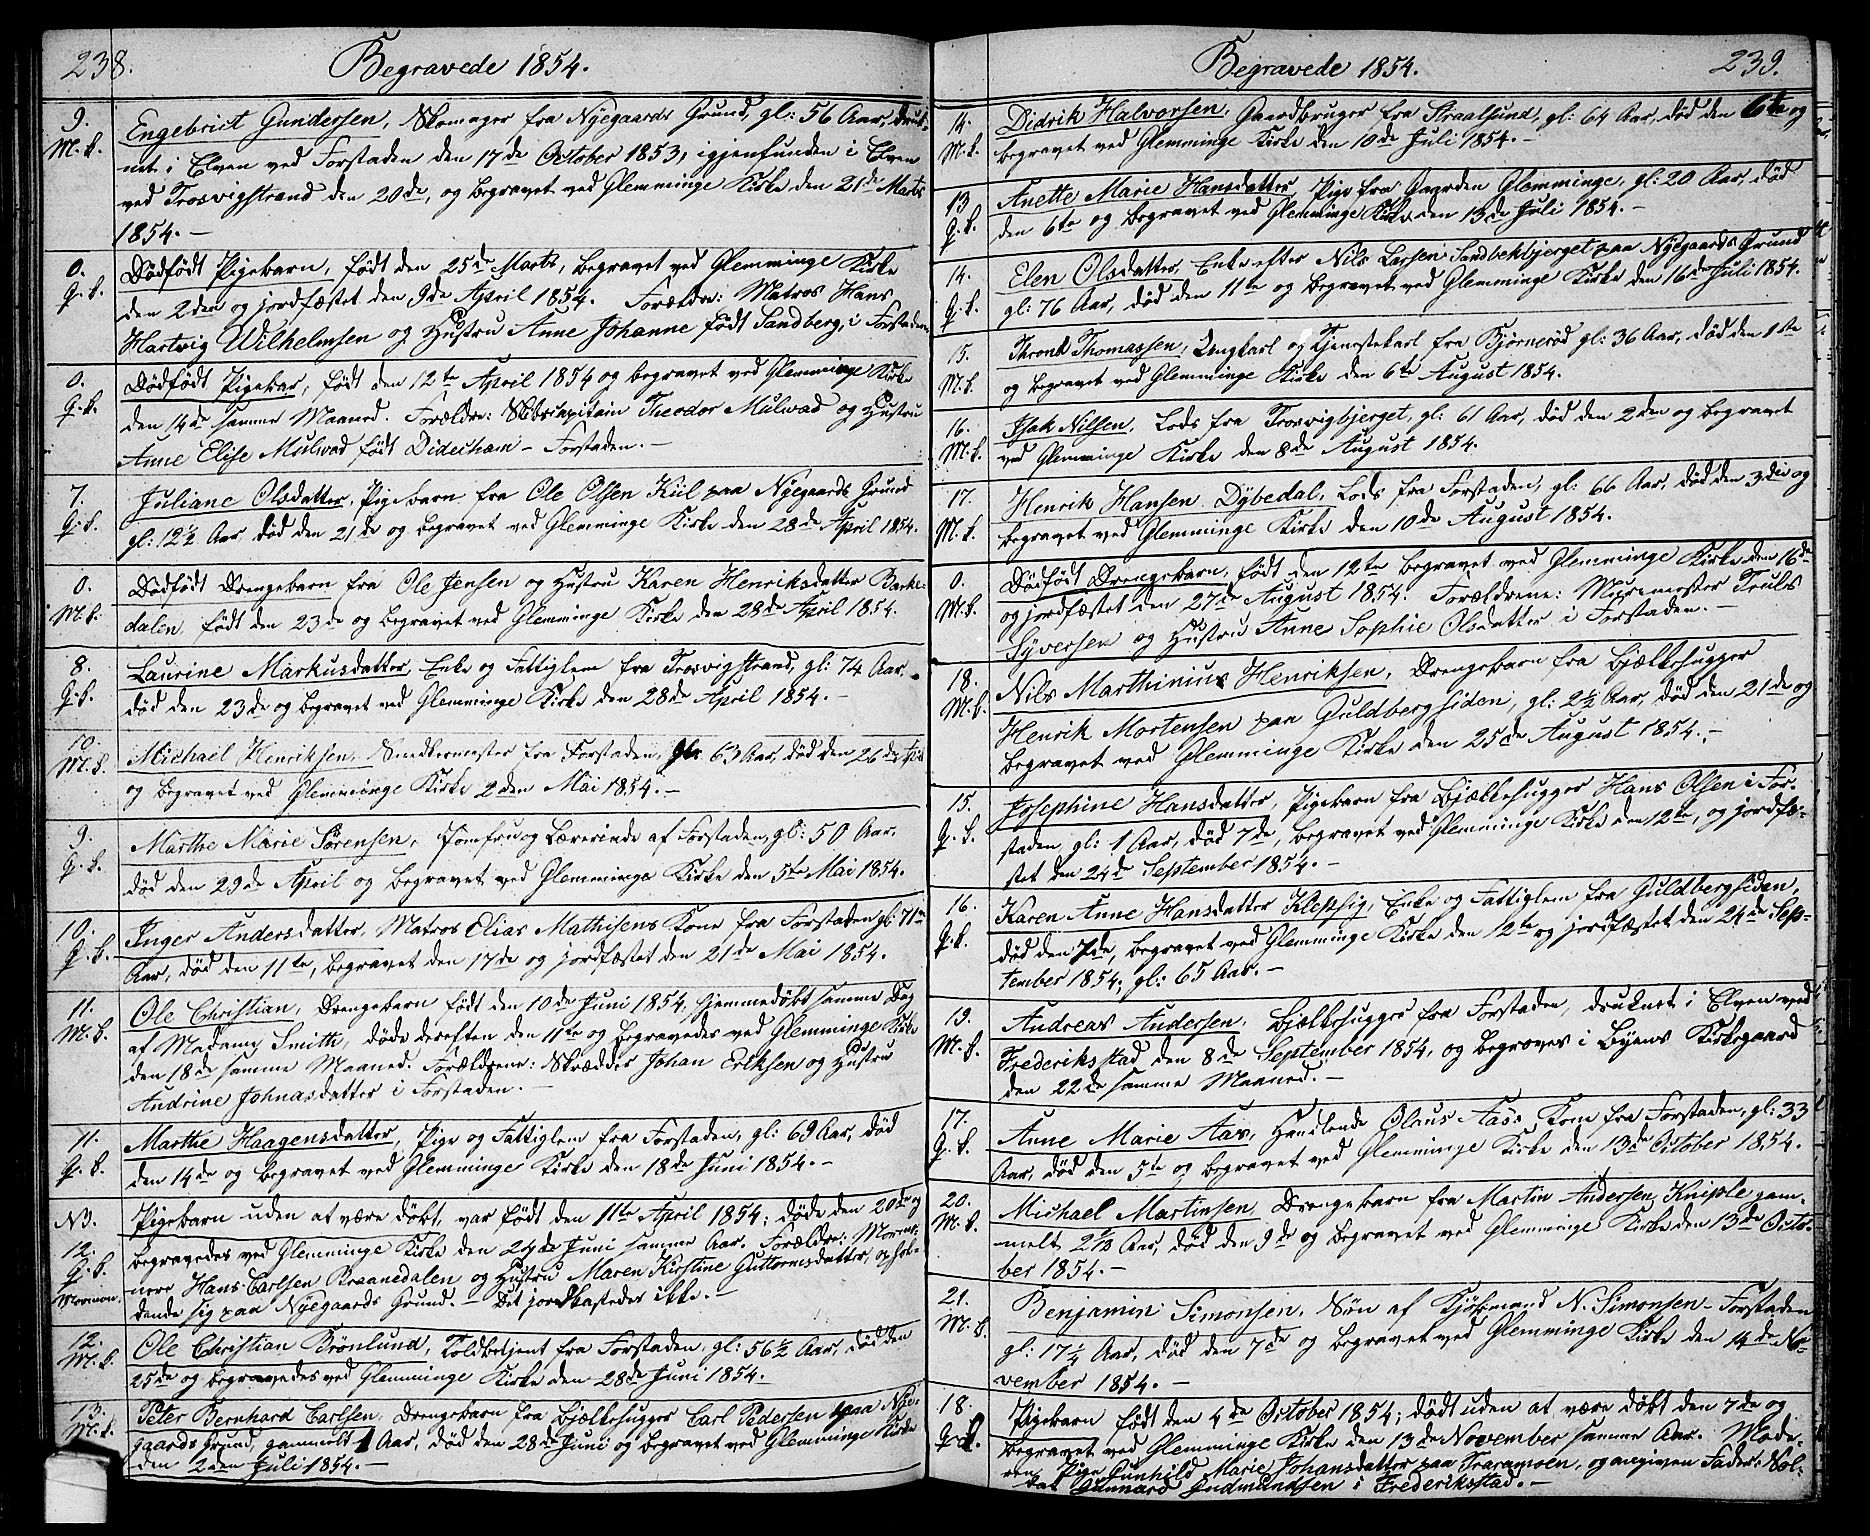 238.
Begravede 1854.
9.
M.k.
Engebrict Gundersen, Skomager fra Nyegaards Grund, gl: 56 Aar, druk-
net i Elven ved Forstaden den 17de October 1853, igjenfunden i Elven
ved Trosvigstrand den 20de, og begravet ved Glemminge Kirke den 21de Marts
1854. —
0.
Q.k.
Dødfödt Pigebarn, født den 25de Marts, begravet ved Glemminge Kirke
den 2den og jordfæstet den 9de April 1854. Forældre: Matros Hans
Hartvig Wilhelmsen og Hustru Anne Johanne født Sandberg, i Forstaden
0.
Q.k.
Dødfödt Pigebar, født den 12te April 1854 og begravet ved Glemminge Kirke
den 14de samme Maaned. Forældre: Skibscapitain Theodor Mulwad og Hustru
Anne Elise Mulwad født Didecham – Forstaden. —
7.
Q.k.
Juliane Olsdatter, Pigebarn fra Ole Olsen Kiil paa Nyegaards Grund
gl: 12½ Aar død den 21de og begravet ved Glemminge Kirke den 28de April 1854.
0.
M.k.
Dødfödt Drengebarn fra Ole Jensen og Hustru Karen Henriksdatter Bakke-
dalen, født den 23de og begravet ved Glemminge Kirke, den 28de April 1854.
8.
Q.k.
Laurine Markusdatter, Enke og Fattiglem fra Trosvigstrand, gl: 74 Aar,
død den 23de og begravet ved Glemminge Kirke den 28de April 1854. —
10.
M.k.
Michael Henriksen, Snedkermester fra Forstaden, gl: 63 Aar, død den 26de April
og begravet ved Glemminge Kirke 2den Mai 1854. —
9.
Q.k.
Marthe Marie Sørensen, Jomfru og Lærerinde af Forstaden, gl: 50 Aar,
død den 29de April og begravet ved Glemminge Kirke den 5te Mai 1854.
10.
Q.k.
Inger Andersdatter, Matros Elias Mathisens Kone fra Forstaden gl: 71
Aar, død den 11te, begravet den 17de og jordfæstet den 21de Mai 1854.
11.
M.k.
Ole Christian, Drengebarn født den 10de Juni 1854, hjemmedöbt samme Dag
af Madam Smith, døde dereften den 11te og begravedes ved Glemminge Kirke
den 18de samme Maaned. Forældrene: Skrædder Johan Eriksen og Hustru
Andrine Johnasdatter i Forstaden. —
11.
Q.k.
Marthe Haagensdatter, Pige og Fattiglem fra Forstaden, gl: 69 Aar, død
den 14de og begravet ved Glemminge Kirke den 18de Juni 1854. —
N3.
12.
Q.k.
Mormon.
Pigebarn uden at være døbt, var født den 11te April 1854; døde den 20de og
begravedes ved Glemminge Kirke den 24de Juni samme Aar. Forældre: Mormo-
nere Hans Carlsen Kraanedalen og Hustru Maren Kirstine Guttormsdatter, ophol-
dende sig paa Nyegaards Grund. – Det jordkastedes ikke. —
12.
M.k.
Ole Christian Brönlund, Toldbetjent fra Forstaden, gl: 56½ Aar, død den
25de og begravedes ved Glemminge Kirke den 28de Juni 1854. —
13.
M.k.
Peter Bernhard Carlsen, Drengebarn fra Bjælkehugger Carl Pedersen paa Nye-
gaards Grund, gammelt 1 Aar, død den 28de Juni og begravet ved Glemminge Kirke
den 2den Juli 1854. —
Begravede 1854.
239.
14.
M.k.
Didrik Halvorsen, Gaardbruger fra Straalsund, gl: 64 Aar, død den 6te og
begravet ved Glemminge Kirke den 10de Juli 1854. —
13
Q.k.
Anette Marie Hansdatter, Pige fra Gaarden Glemminge, gl: 20 Aar, død
den 6te og begravet ved Glemminge Kirke den 13de Juli 1854. —
14.
Q.k.
Elen Olsdatter, Enke efter Nils Larsen Sandbekbjerget paa Nyegaards Grund
gl: 76 Aar, død den 11te og begravet ved Glemminge Kirke den 16de Juli 1854.
15.
M.k.
Thrond Thomassen, Ungkarl og Tjenestekarl fra Bjørnerød gl: 36 Aar, død den 1ste
og begravet ved Glemminge Kirke den 6te August 1854.
16.
M.k.
Isak Nilsen, Lods fra Trosvigbjerget, gl: 61 Aar, død den 2den og begravet
ved Glemminge Kirke den 8de August 1854.
17.
M.k.
Henrik Hansen Dybedal, Lods fra Forstaden, gl: 66 Aar, død den 3die og
begravet ved Glemminge Kirke den 10de August 1854.
0.
M.k.
Dødfödt Drengebarn, født den 12te begravet ved Glemminge Kirke den 16de
og jordfæstet den 27de August 1854. Forældrene: Muremester Truls
Syversen og Hustru Anne Sophie Olsdatter i Forstaden. —
18.
M.k.
Nils Marthinius Henriksen, Drengebarn fra Bjælkehugger
Henrik Mortensen paa Guldbergsiden, gl: 2½ Aar, død den 21de og
begravet ved Glemminge Kirke den 25de August 1854. —
15.
Q.k.
Josephine Hansdatter, Pigebarn fra Bjælkehugger Hans Olsen i For-
staden, gl: 1 Aar, død 7de, begravet ved Glemminge Kirke den 12te, og jordfæ-
stet den 24de September 1854. —
16.
Q.k.
Karen Anne Hansdatter Klepsig, Enke og Fattiglem fra Guldbergsiden,
død den 7de, begravet ved Glemminge Kirke den 12te og jordfæstet den 24de Sep-
tember 1854; gl: 65 Aar. —
19.
M.k.
Andreas Andersen, Bjælkehugger fra Forstaden, druknet i Elven ved
Frederiksstad den 8de September 1854, og begroves i Byens Kirkegaard
den 22de samme Maaned. —
17.
Q.k.
Anne Marie Aas, Handlende Olaus Aass Kone fra Forstaden, gl: 33
Aar, død den 5te og begravet ved Glemminge Kirke den 13de October 1854.
20.
M.k.
Michael Martinsen, Drengebarn fra Martin Andersen Kniple gam-
melt Aar, død den 9de og begravet ved Glemminge Kirke den 13de Octo-
ber 1854. —
21.
M.k.
Benjamin Simonsen, Søn af Kjøbmand N. Simonsen – Forstaden
gl: 17¼ Aar, død den 7de og begravet ved Glemminge Kirke den 14de No-
vember 1854. —
18.
Q.k.
Pigebarn født den 4de October 1854; dødt uden at være døbt den 7de og
begravet ved Glemminge Kirke den 13de November samme Aar. Mode-
ren: Pige Gunhild Marie Johansdatter paa Traramoen, og angiven Fader: Sol-
dat Gunnard Gudmundsen i Frederiksstad. —